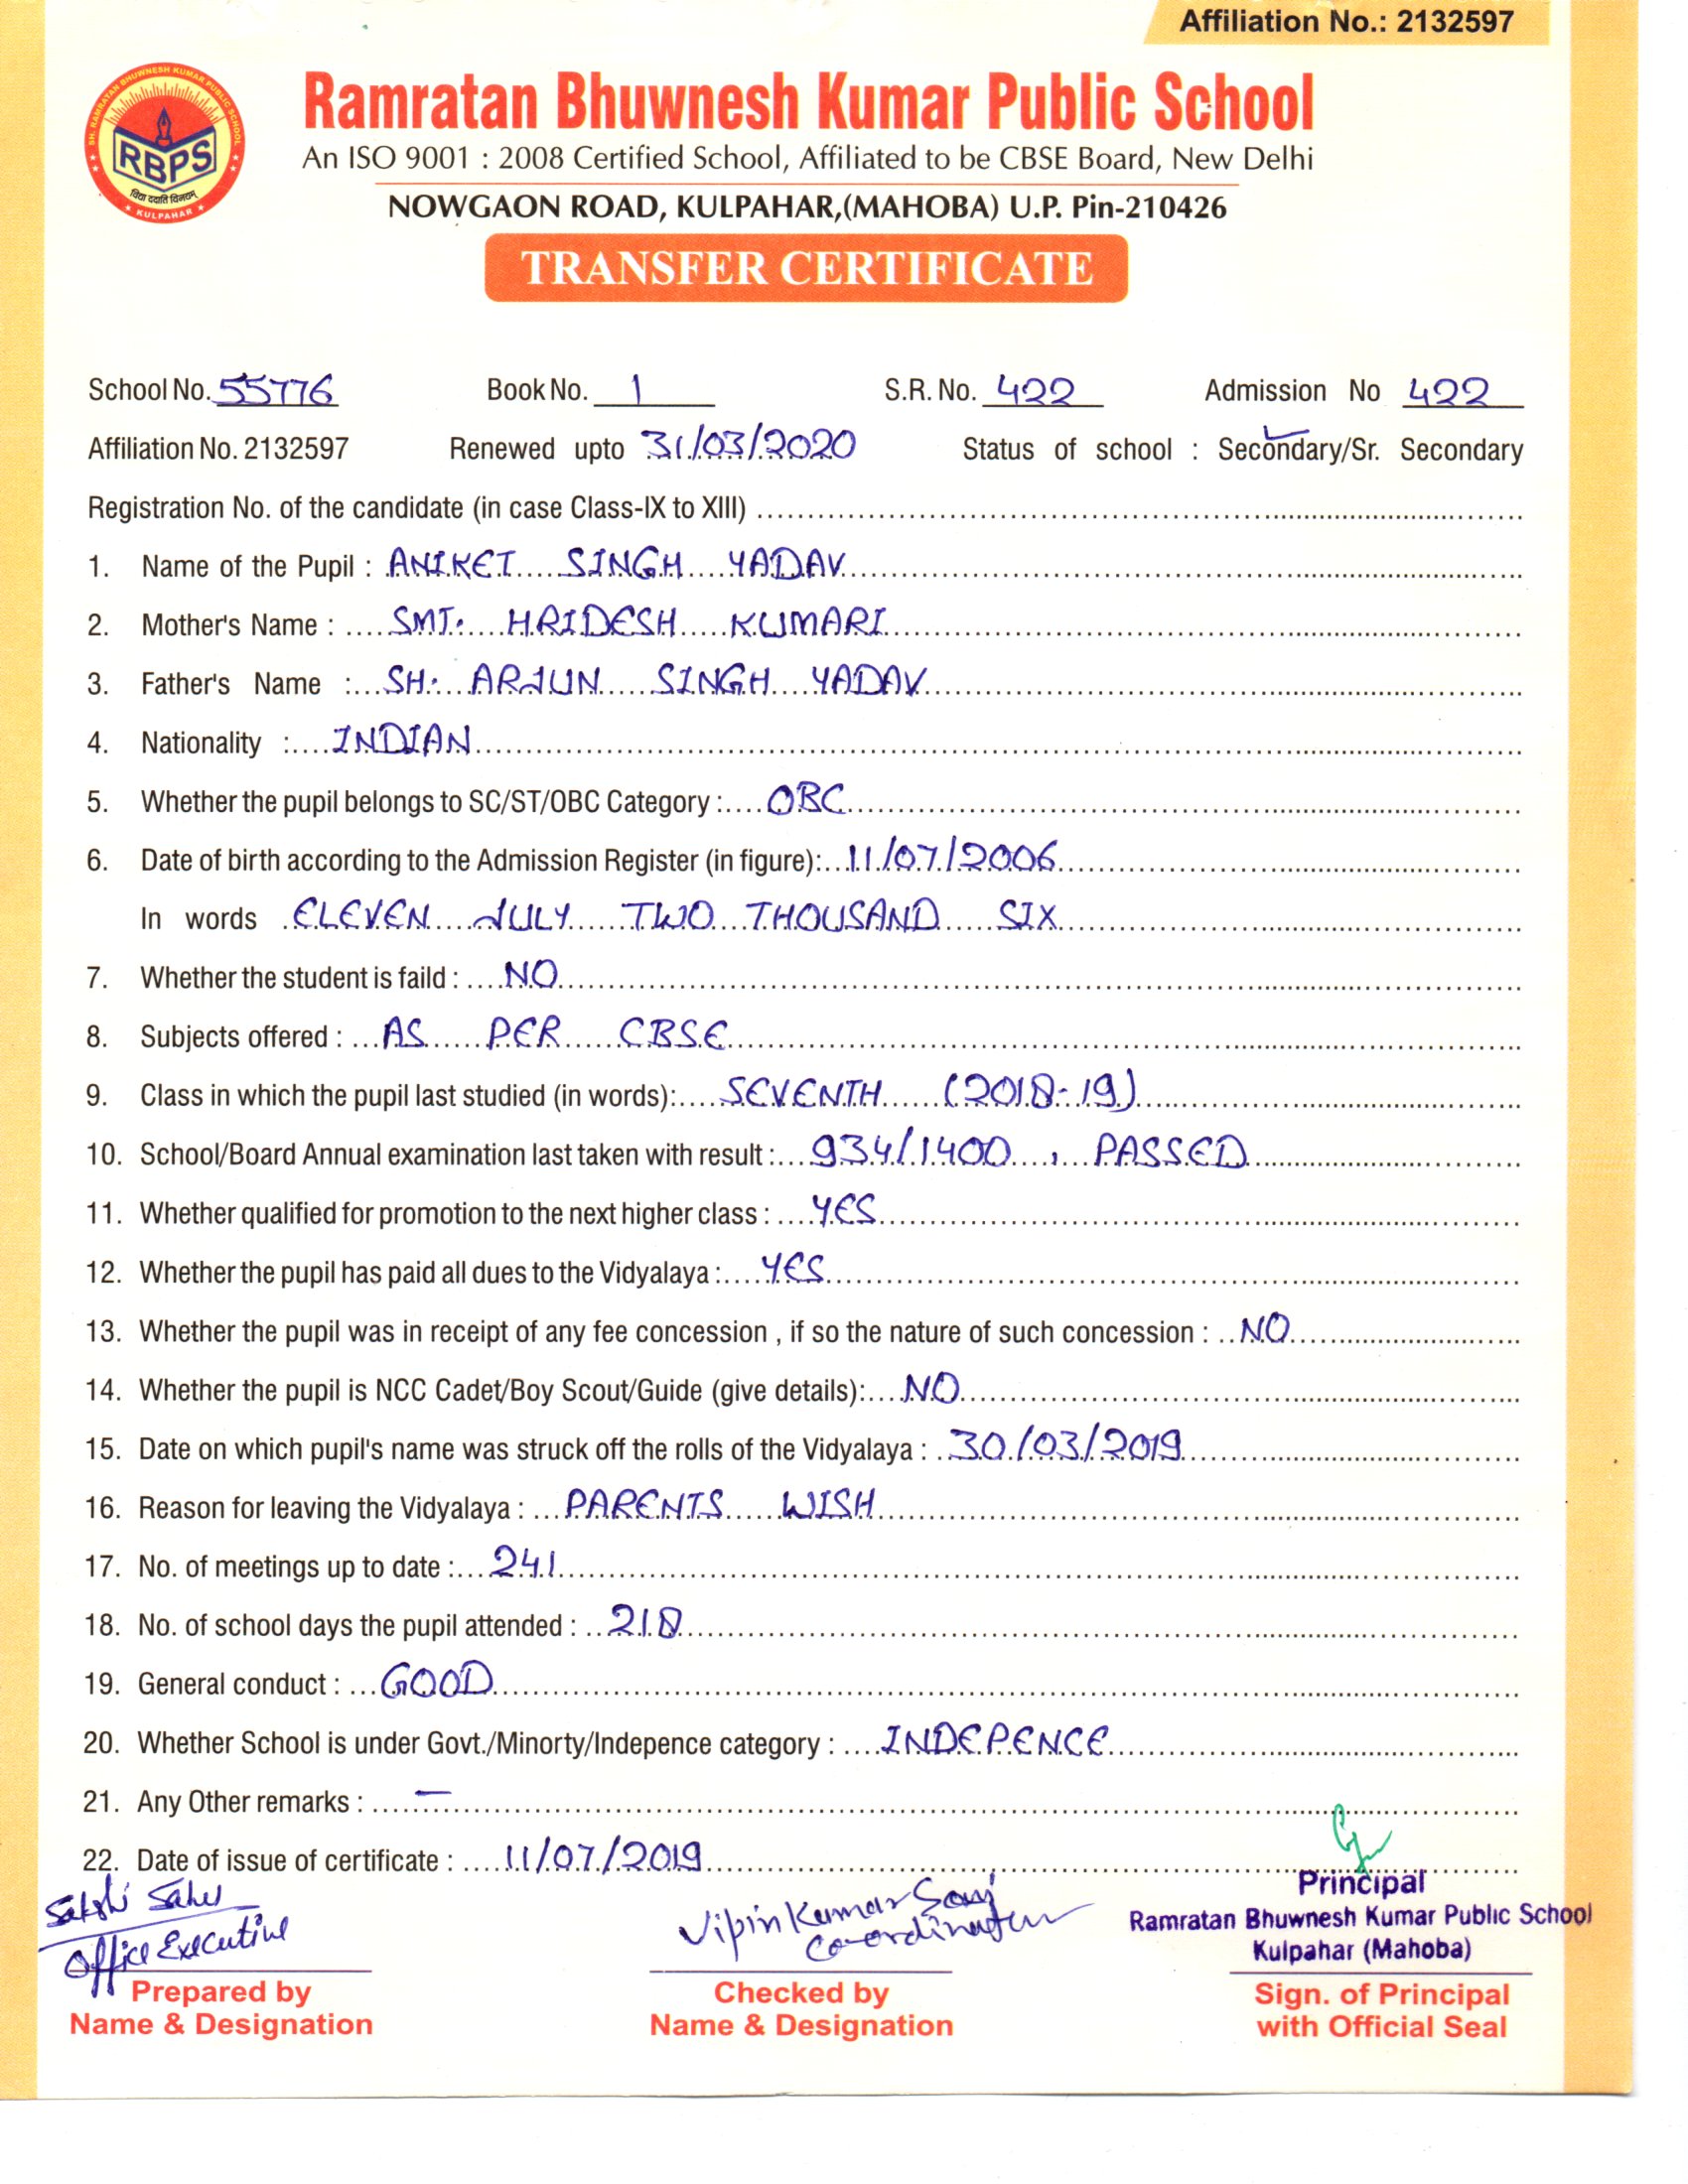 Affiliation No.: 2132597
SH. RAMRATAN BHUWNESH KUMAR PUBLIC SCHOOL
RBPS
विद्या ददाति विनयम्
KULPAHAR
Ramratan Bhuwnesh Kumar Public School
An ISO 9001 : 2008 Certified School, Affiliated to be CBSE Board, New Delhi
NOWGAON ROAD, KULPAHAR,(MAHOBA) U.P. Pin-210426
TRANSFER CERTIFICATE
School No. 55776 Book No. 1 S.R. No. 422 Admission No 422
Affiliation No. 2132597 Renewed upto 31/03/2020 Status of school : Secondary/Sr. Secondary
Registration No. of the candidate (in case Class-IX to XIII)
1. Name of the Pupil : ANIKET SINGH YADAV
2. Mother's Name : SMT. HRIDESH KUMARI
3. Father's Name : SH. ARJUN SINGH YADAV
4. Nationality : INDIAN
5. Whether the pupil belongs to SC/ST/OBC Category : OBC
6. Date of birth according to the Admission Register (in figure): 11/07/2006
In words ELEVEN JULY TWO THOUSAND SIX
7. Whether the student is faild : NO
8. Subjects offered : AS PER CBSE
9. Class in which the pupil last studied (in words): SEVENTH (2018-19)
10. School/Board Annual examination last taken with result : 934/1400 , PASSED
11. Whether qualified for promotion to the next higher class : YES
12. Whether the pupil has paid all dues to the Vidyalaya : YES
13. Whether the pupil was in receipt of any fee concession , if so the nature of such concession : NO
14. Whether the pupil is NCC Cadet/Boy Scout/Guide (give details): NO
15. Date on which pupil's name was struck off the rolls of the Vidyalaya : 30/03/2019
16. Reason for leaving the Vidyalaya : PARENTS WISH
17. No. of meetings up to date : 241
18. No. of school days the pupil attended : 218
19. General conduct : GOOD
20. Whether School is under Govt./Minorty/Indepence category : INDEPENCE
21. Any Other remarks : —
22. Date of issue of certificate : 11/07/2019
Sakshi
Office Executive
Vipin Kumar Soni
Co-ordinator
Principal
Ramratan Bhuwnesh Kumar Public School
Kulpahar (Mahoba)
Prepared by
Name & Designation
Checked by
Name & Designation
Sign. of Principal
with Official Seal